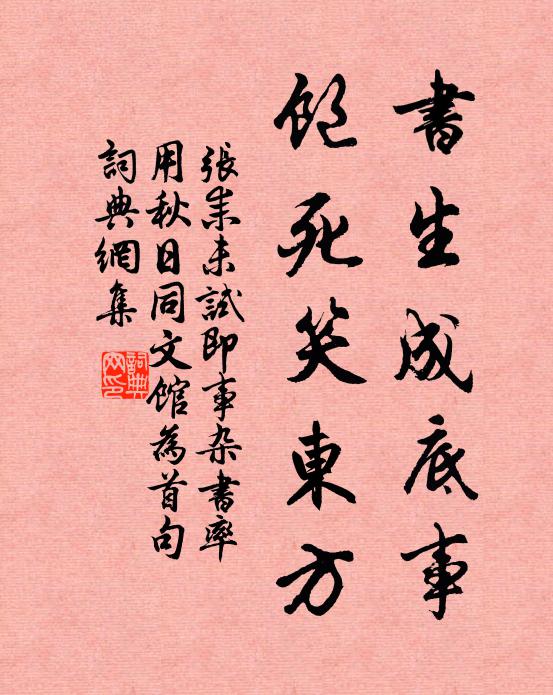 書生成底事
飽死笑東方
張耒未試即事杂書率
用秋日同文館為首句
詞典網集
詞典
网印